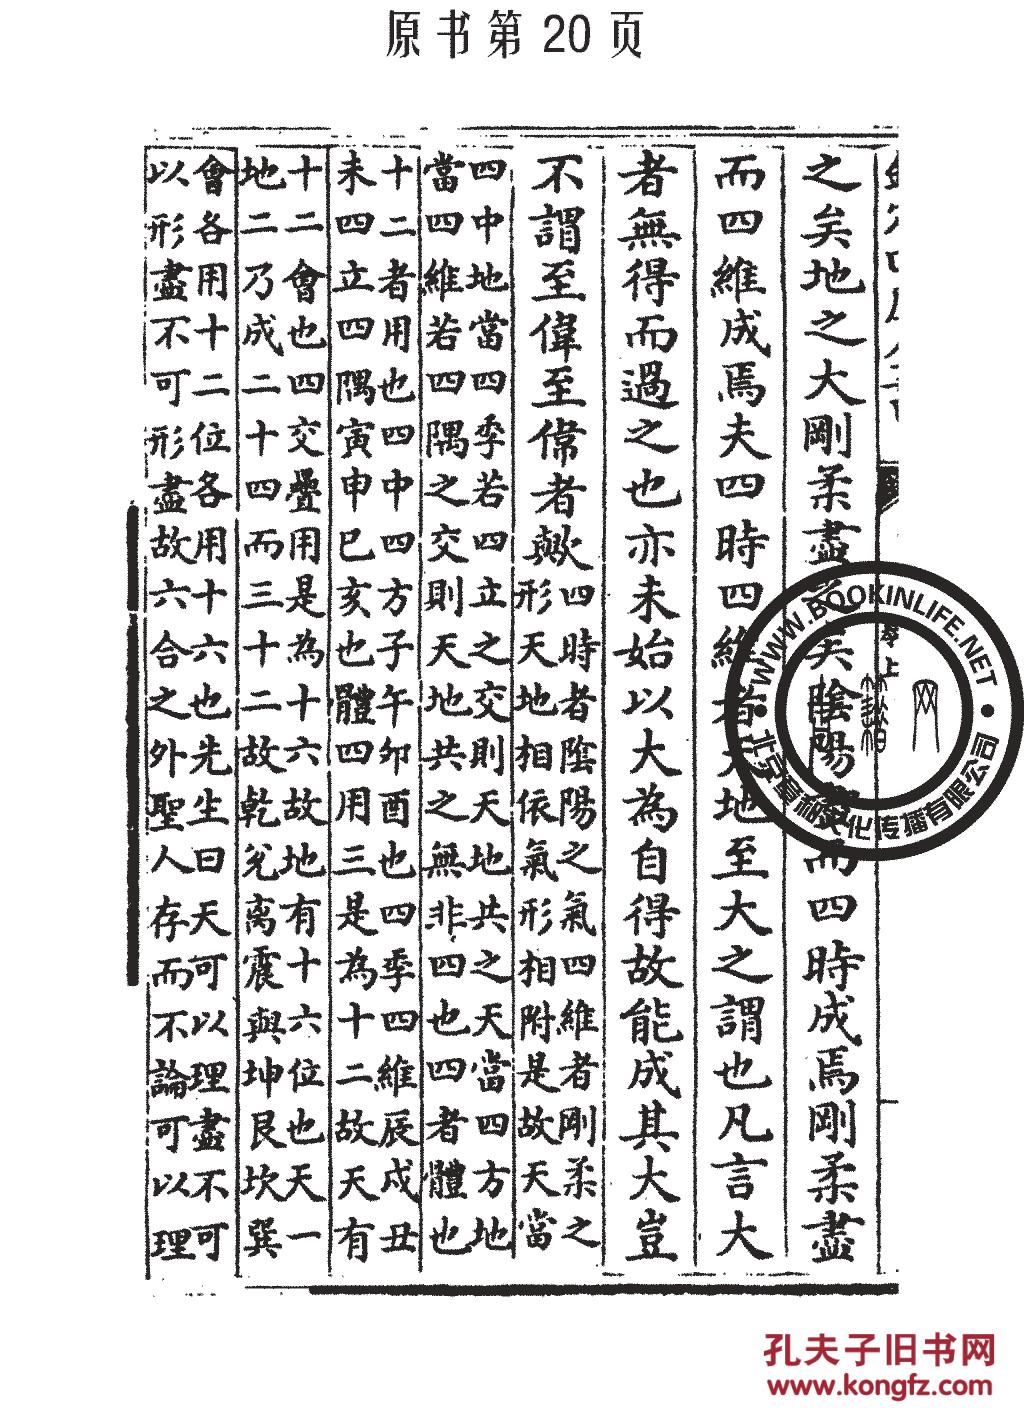 原书第20页
之矣地之大剛柔盡之矣陰陽盡而四時成焉剛柔盡
而四維成焉夫四時四維者天地至大之謂也凡言大
者無得而過之也亦未始以大為自得故能成其大豈
不謂至偉至偉者歟
四時者陰陽之氣四維者剛柔之
形天地相依氣形相附是故天當
四中地當四季若四立之交則天地共之天當四方地
當四維若四隅之交則天地共之無非四也四者體也
十二者用也四中四方子午卯酉也四季四維辰戌丑
未四立四隅寅申巳亥也體四用三是為十二故天有
十二會也四交疊用是為十六故地有十六位也天一
地二乃成二十四而三十二故乾兌离震與坤艮坎巽
會各用十二位各用十六也先生曰天可以理盡不可
以形盡不可形盡故六合之外聖人存而不論可以理
WWW.BOOKINLIFE.NET
文化传播有限公司
孔夫子旧书网
www.kongfz.com